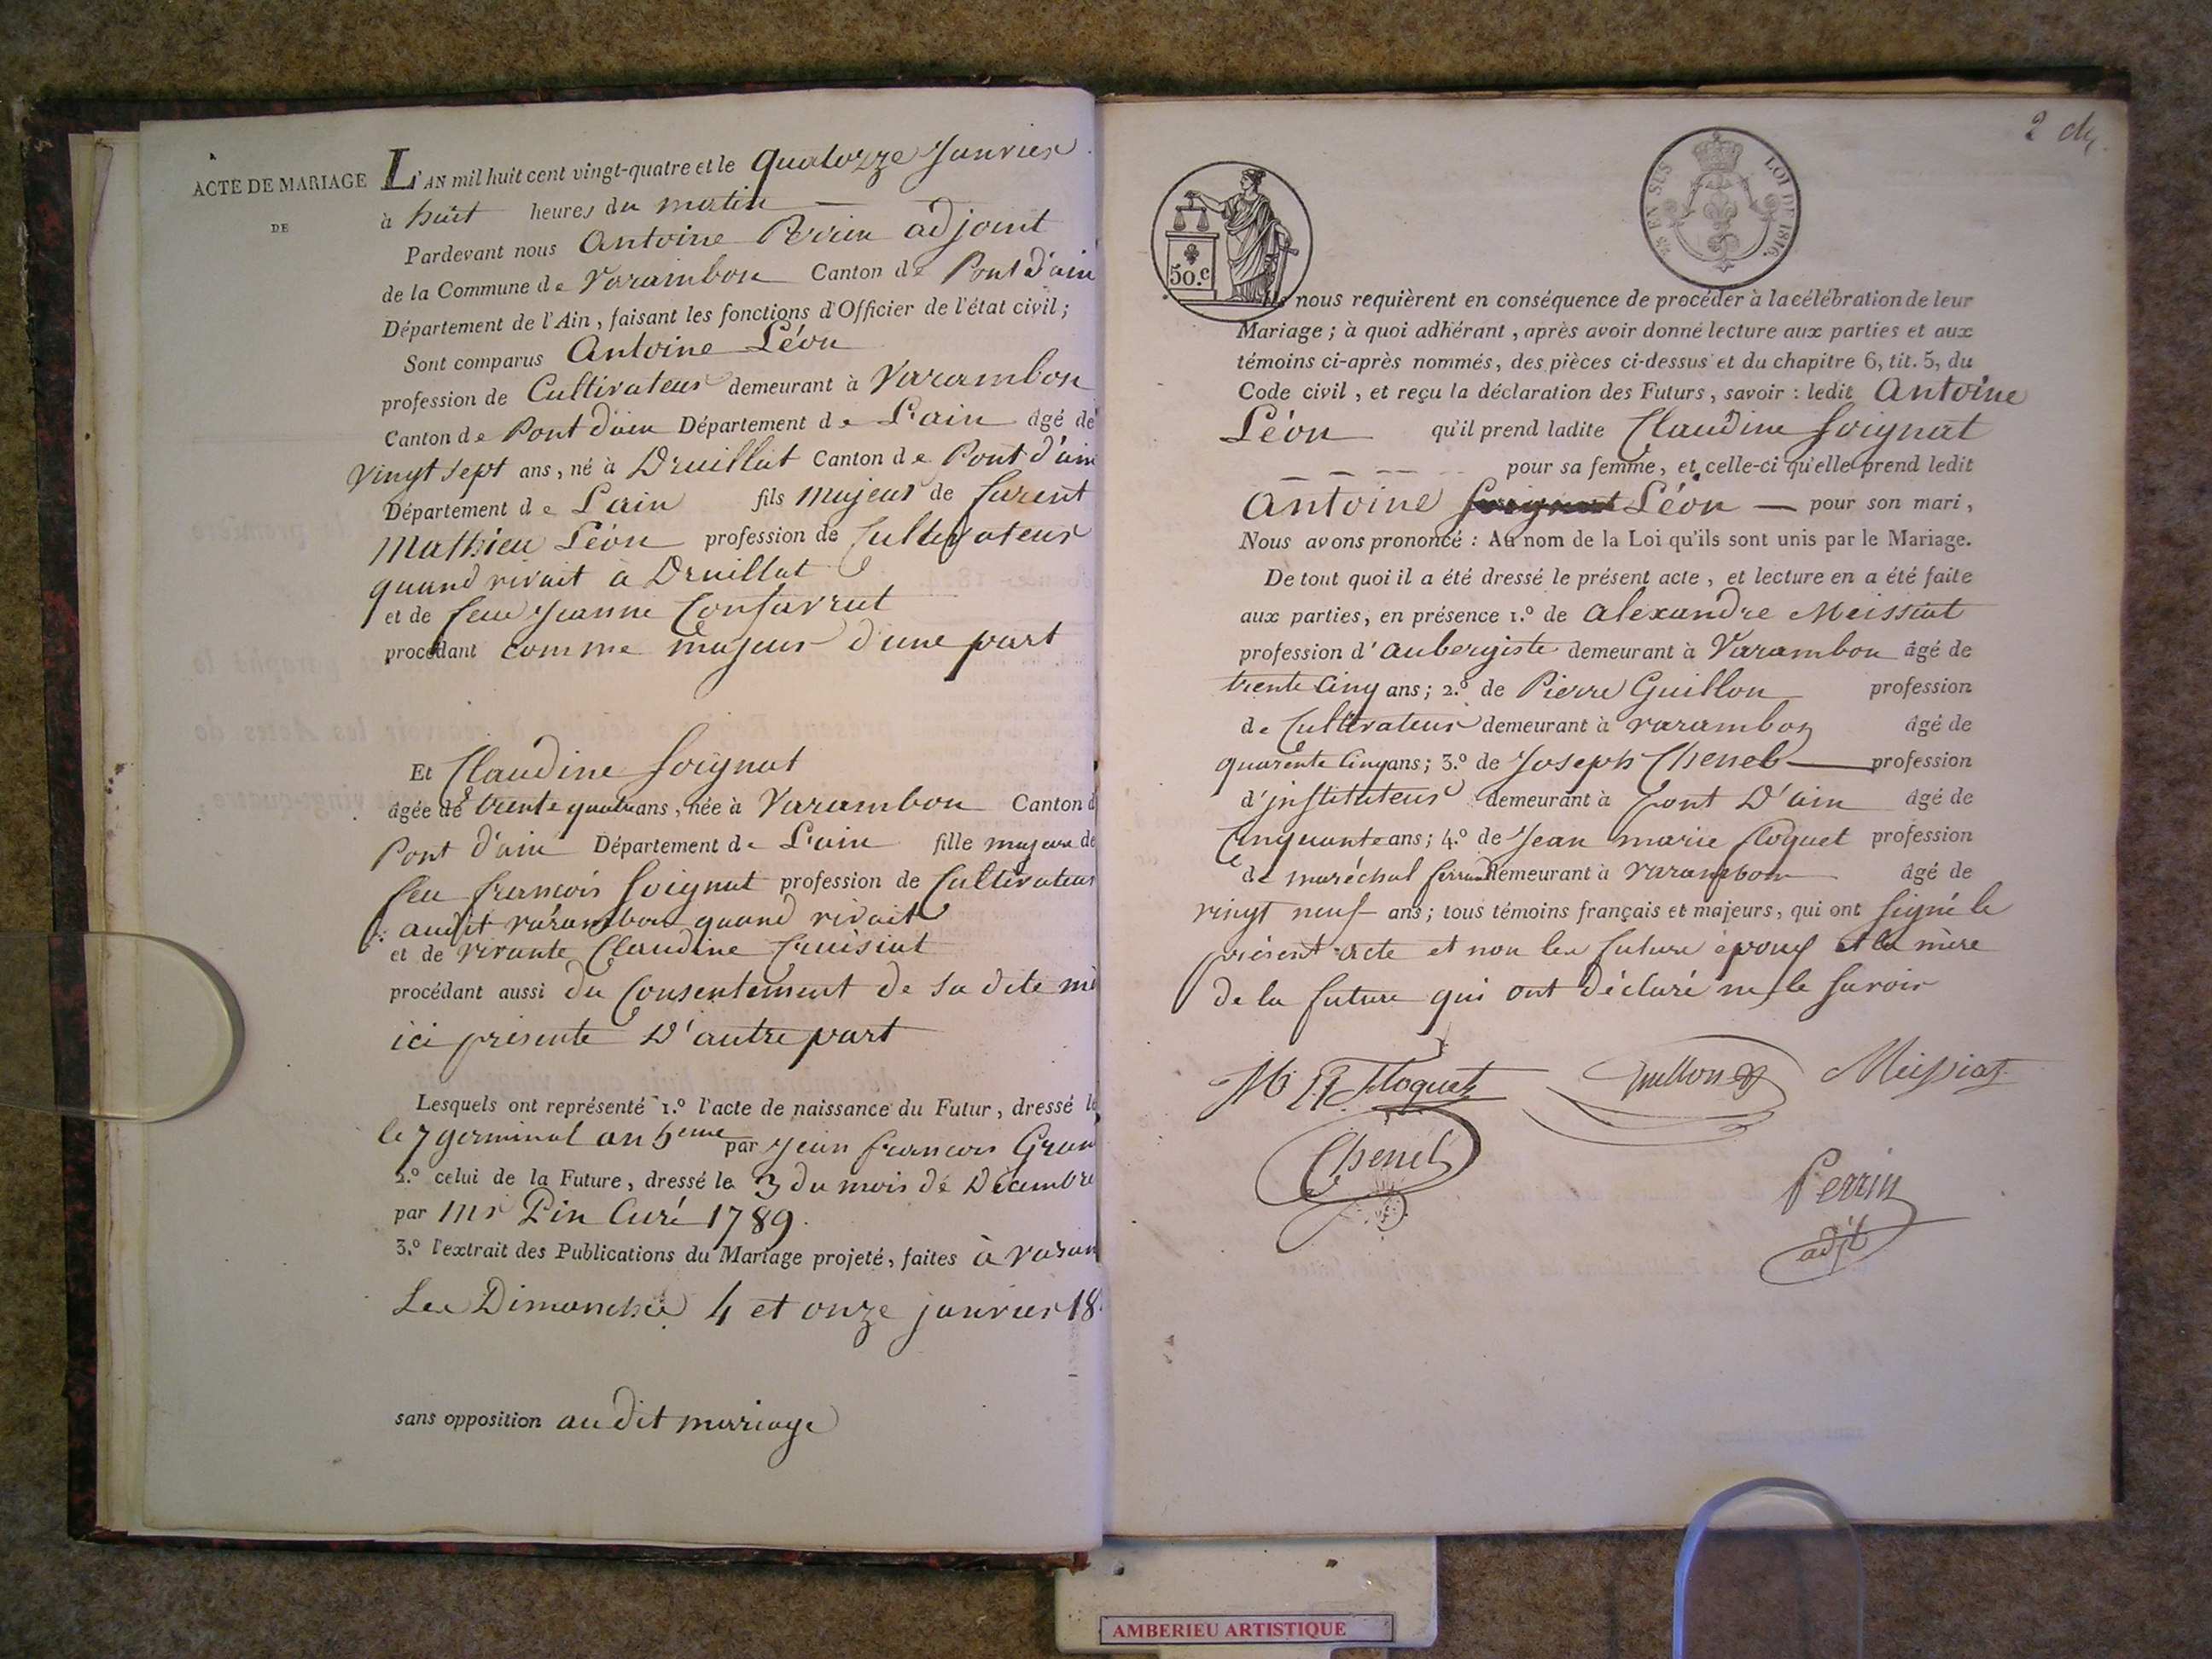 ACTE DE MARIAGE
DE
L'AN mil huit cent vingt-quatre et le quatorze Janvier
à huit heures du matin
Pardevant nous Antoine Perrin adjoint
de la Commune de Varambon Canton de Pont d'ain
Département de l'Ain, faisant les fonctions d'Officier de l'état civil;
Sont comparus Antoine Léon
profession de Cultivateur demeurant à Varambon
Canton de Pont d'ain Département de L'ain âgé de
vingt sept ans, né à Druillat Canton de Pont d'ain
Département de L'ain fils majeur de
Mathieu Léon profession de Cultivateur
quand vivait à Druillat
et de feue Jeanne Confavrut
procédant comme majeur d'une part
Et Claudine Soignat
âgée de trente quatre ans, née à Varambon Canton d
Pont d'ain Département de L'ain fille majeure de
feu francois Soignat profession de Cultivateur
audit varambon quand vivait
et de vivante Claudine fruisiat
procédant aussi du Consentement de sa dite mè
ici présente D'autre part
Lesquels ont représenté 1.º l'acte de naissance du Futur, dressé le
le 7 germinal an 5eme par Jean francois Gran
2.º celui de la Future, dressé le 3 du mois de Décembre
par Mr Pin Curé 1789.
3.º l'extrait des Publications du Mariage projeté, faites à varam
Les Dimanches 4 et onze janvier 18
sans opposition audit mariage
2 
50.c
LOI DE 1816.
EN SUS
Ils nous requièrent en conséquence de procéder à la célébration de leur
Mariage; à quoi adhérant, après avoir donné lecture aux parties et aux
témoins ci-après nommés, des pièces ci-dessus et du chapitre 6, tit. 5, du
Code civil, et reçu la déclaration des Futurs, savoir: ledit Antoine
Léon qu'il prend ladite Claudine Soignat
pour sa femme, et celle-ci qu'elle prend ledit
Antoine Soignat Léon — pour son mari,
Nous avons prononcé: Au nom de la Loi qu'ils sont unis par le Mariage.
De tout quoi il a été dressé le présent acte, et lecture en a été faite
aux parties, en présence 1.º de alexandre Meissiat
profession d'aubergiste demeurant à Varambon âgé de
trente cinq ans; 2.º de Pierre Guillon profession
de Cultivateur demeurant à varambon âgé de
quarente Cinq ans; 3.º de Joseph Chenel profession
d'jnstituteur demeurant à pont D'ain âgé de
Cinquante ans; 4.º de Jean marie floquet profession
de maréchal ferrand demeurant à varambon âgé de
vingt neuf ans; tous témoins français et majeurs, qui ont signé le
présent acte et non les future époux et la mère
de la future qui ont déclaré ne le savoir
floquet Guillon Meissiat
Chenel
Perrin
adjt
AMBERIEU ARTISTIQUE